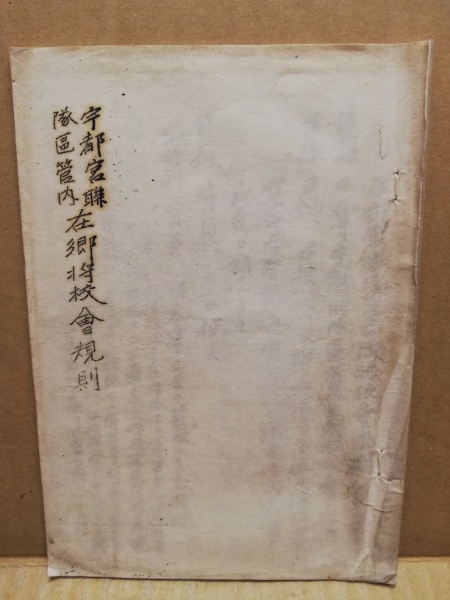 宇都宮聯
隊區管内
在郷将校會規則